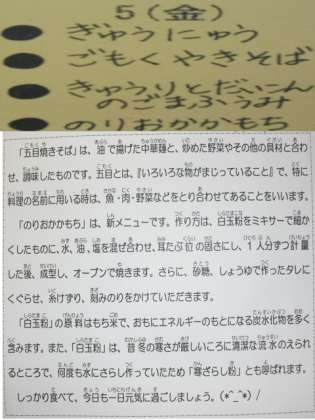 5(金)
● ぎゅうにゅう
● ごもくやきそば
● きゅうりとだいこん
のごまふうみ
● のりおかかもち
「五目焼きそば」は、油で揚げた中華麺と、炒めた野菜やその他の具材と合わ
せ、調味したものです。五目とは、『いろいろな物がまじっていること』で、特に
料理の名前に用いる時は、魚・肉・野菜などをとり合わせてあることをいいます。
「のりおかかもち」は、新メニューです。作り方は、白玉粉をミキサーで細か
くしたものに、水、油、塩を混ぜ合わせ、耳たぶ位の固さにし、1人分ずつ計量
した後、成型し、オーブンで焼きます。さらに、砂糖、しょうゆで作ったタレに
くぐらせ、糸けずり、刻みのりをかけていただきます。
「白玉粉」の原料はもち米で、おもにエネルギーのもとになる炭水化物を多く
含みます。また、「白玉粉」は、昔、冬の寒さが厳しいころに清潔な流水のえられ
るところで、何度も水にさらし作っていたため「寒ざらし粉」とも呼ばれます。
しっかり食べて、今日も一日元気に過ごしましょう。(*^_^*)/